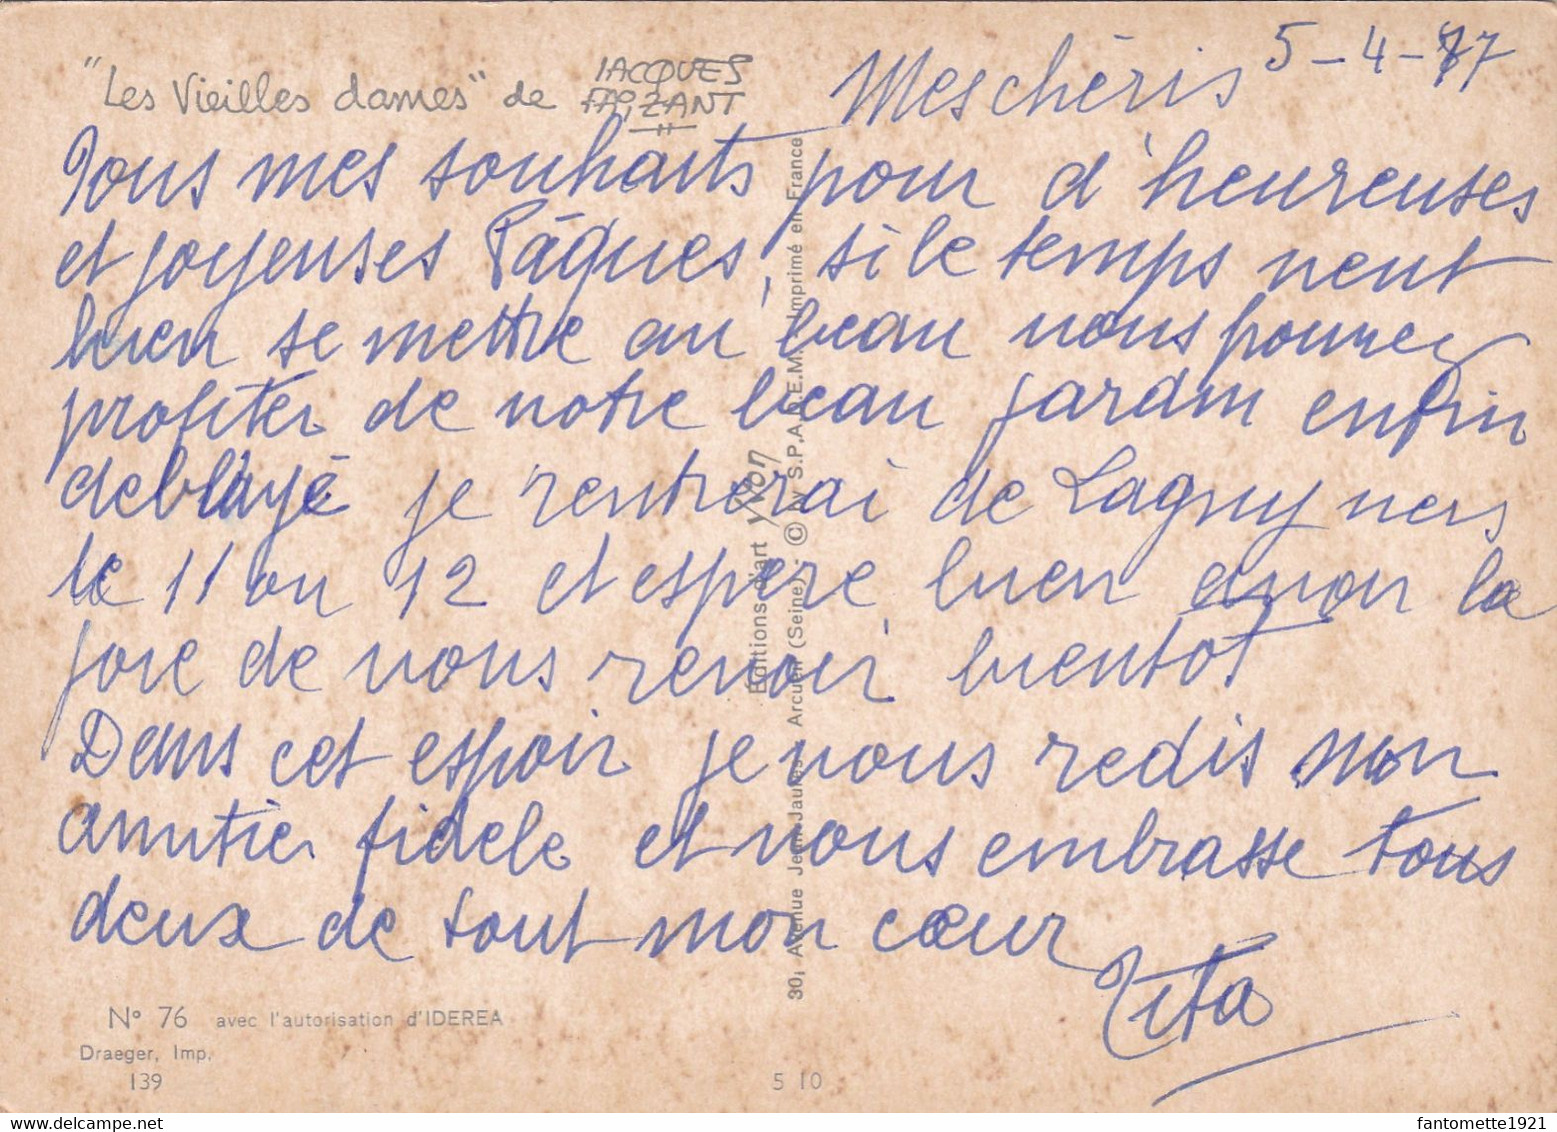 "Les Vieilles dames" de JACQUES FAIZANT
5-4-77
Mes chéris
Tous mes souhaits pour d'heureuses
et joyeuses Pâques, si le temps veut
bien se mettre au beau vous pourrez
profiter de votre beau jardin enfin
deblayé je rentrerai de Lagny vers
le 11 ou 12 et espère bien avoir la
joie de vous revoir bientot
Dans cet espoir je vous redis mon
amitié fidele et vous embrasse tous
deux de tout mon cœur
Tita
N° 76 avec l'autorisation d'IDEREA
Draeger, Imp.
139
5 10
Éditions d'art Yvon
30, Avenue Jean-Jaurès - Arcueil (Seine) - © by S.P.A.D.E.M. Imprimé en France
fantomette1921